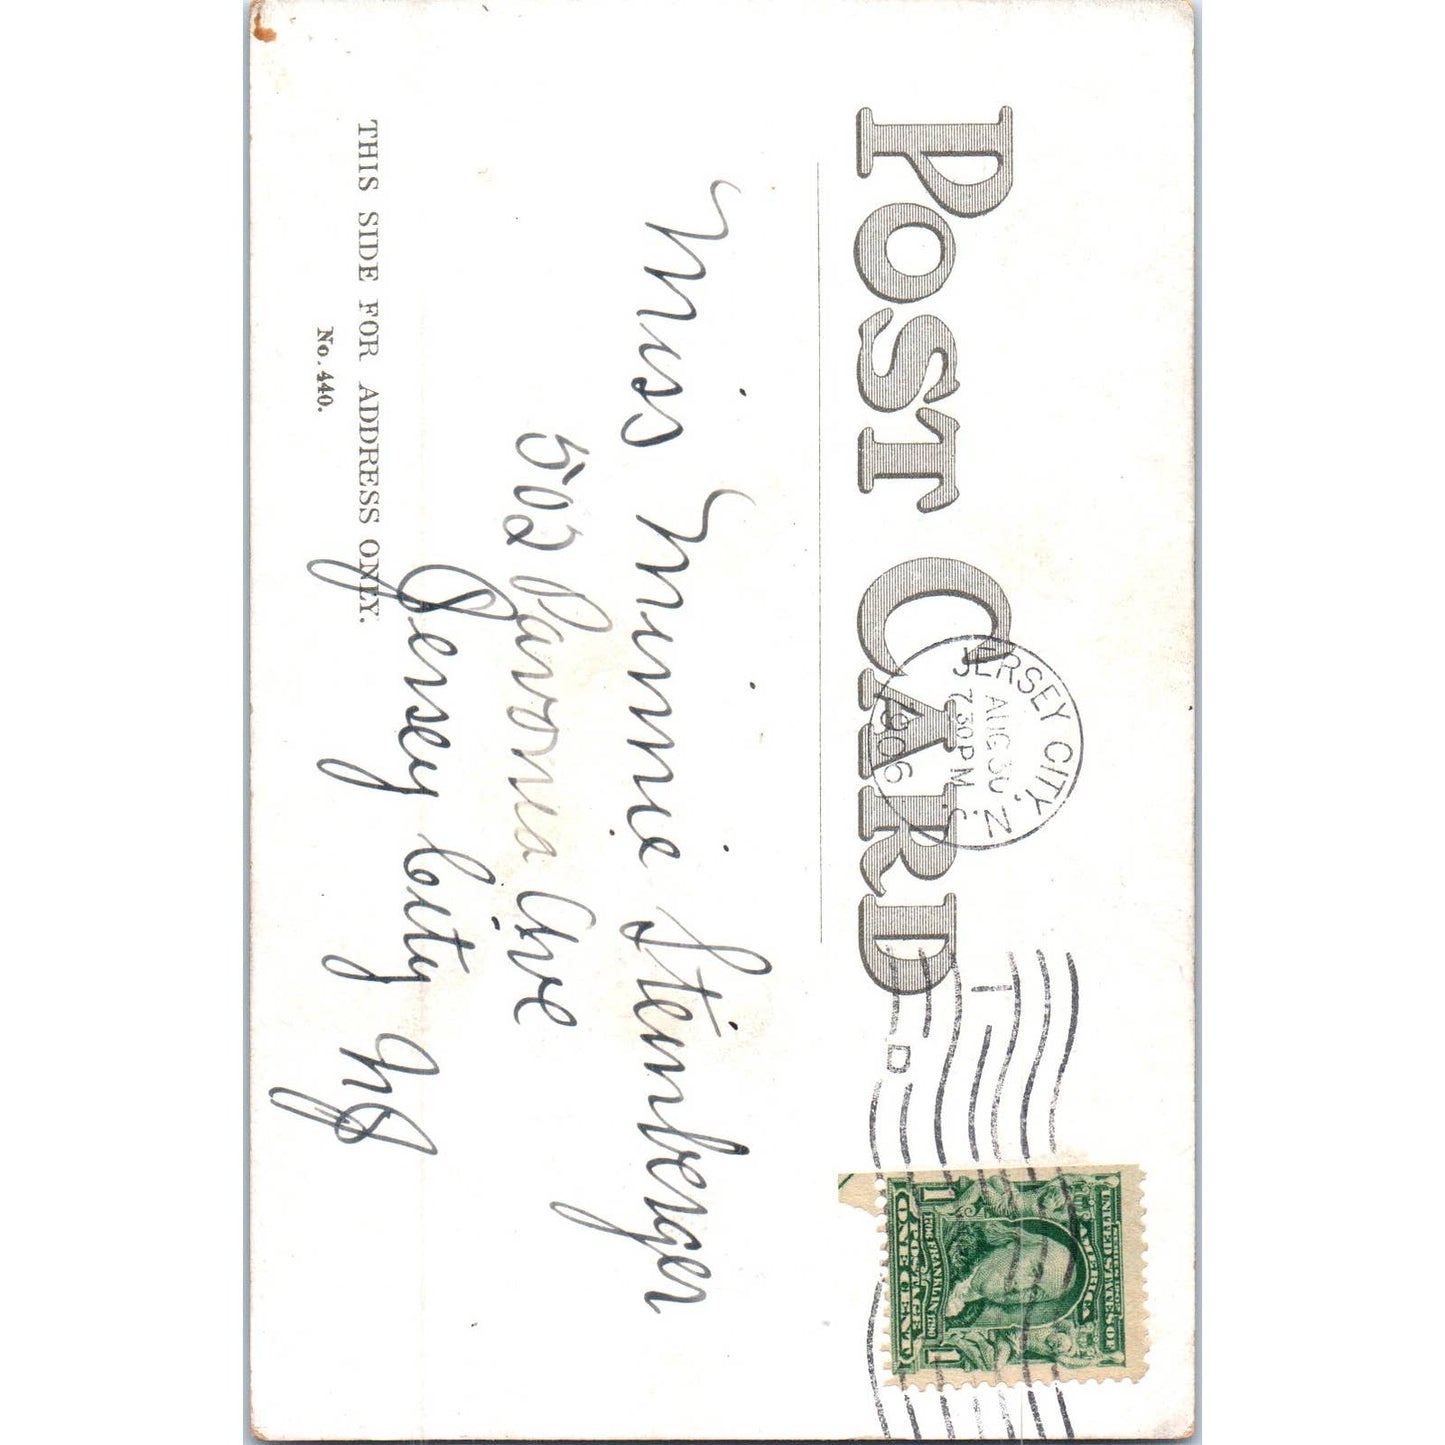 POST CARD
JERSEY CITY, N.J.
AUG 30
7 30 PM
1906
D
UNITED STATES OF
AMERICA
FRANKLIN
POSTAGE
1 ONE CENT 1
Miss Minnie Steinberger
502 Pavonia Ave
Jersey City NJ
THIS SIDE FOR ADDRESS ONLY.
No. 440.